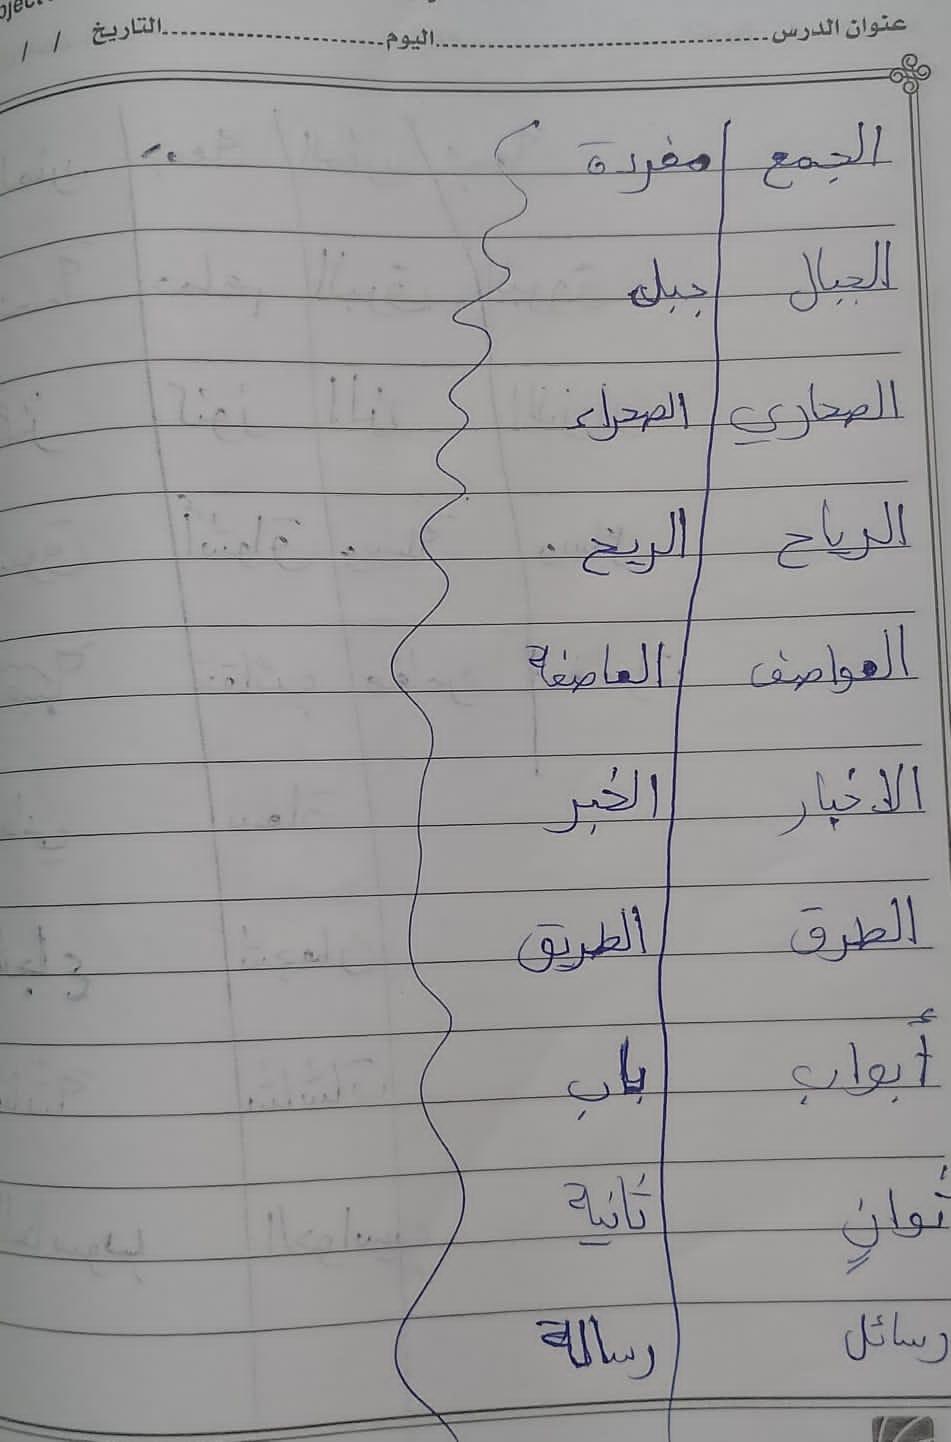 عنوان الدرس اليوم التاريخ / /
الجمع مفردة
الجبال جبل
الصحاري الصحراء
الرياح الريخ
العواصف العاصفة
الاخبار الخبر
الطرق الطريق
أبواب باب
ثوانٍ ثانية
رسائل رسالة